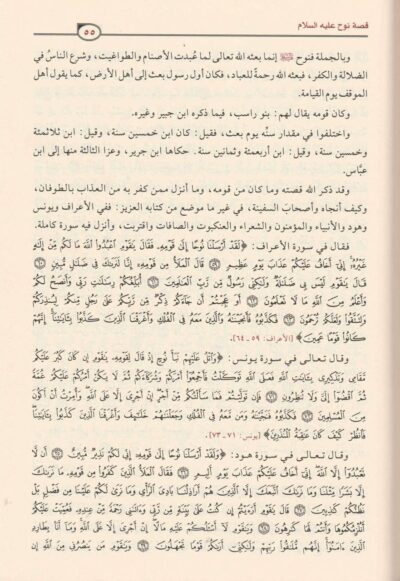 قصة نوح عليه السلام
٥٥
وبالجملة فنوح ﷺ إنما بعثه الله تعالى لما عُبدت الأصنام والطواغيت، وشرع الناسُ في
الضلالة والكفر، فبعثه الله رحمةً للعباد، فكان أول رسول بعث إلى أهل الأرض، كما يقول أهل
الموقف يوم القيامة.
وكان قومه يقال لهم: بنو راسب، فيما ذكره ابن جبير وغيره.
واختلفوا في مقدار سنِّه يوم بعث، فقيل: كان ابن خمسين سنة، وقيل: ابن ثلاثمئة
وخمسين سنة، وقيل: ابن أربعمئة وثمانين سنة. حكاها ابن جرير، وعزا الثالثة منها إلى ابن
عبَّاس.
وقد ذكر الله قصته وما كان من قومه، وما أنزل ممن كفر به من العذاب بالطوفان،
وكيف أنجاه وأصحابَ السفينة، في غير ما موضع من كتابه العزيز: ففي الأعراف ويونس
وهود والأنبياء والمؤمنون والشعراء والعنكبوت والصافات واقتربت، وأنزل فيه سورة كاملة.
فقال في سورة الأعراف: ﴿لَقَدْ أَرْسَلْنَا نُوحًا إِلَىٰ قَوْمِهِ فَقَالَ يَٰقَوْمِ ٱعْبُدُوا۟ ٱللَّهَ مَا لَكُم مِّنْ إِلَٰهٍ
غَيْرُهُۥٓ إِنِّىٓ أَخَافُ عَلَيْكُمْ عَذَابَ يَوْمٍ عَظِيمٍ ۝٥٩ قَالَ ٱلْمَلَأُ مِن قَوْمِهِۦٓ إِنَّا لَنَرَىٰكَ فِى ضَلَٰلٍ مُّبِينٍ ۝٦٠
قَالَ يَٰقَوْمِ لَيْسَ بِى ضَلَٰلَةٌ وَلَٰكِنِّى رَسُولٌ مِّن رَّبِّ ٱلْعَٰلَمِينَ ۝٦١ أُبَلِّغُكُمْ رِسَٰلَٰتِ رَبِّى وَأَنصَحُ لَكُمْ
وَأَعْلَمُ مِنَ ٱللَّهِ مَا لَا تَعْلَمُونَ ۝٦٢ أَوَعَجِبْتُمْ أَن جَآءَكُمْ ذِكْرٌ مِّن رَّبِّكُمْ عَلَىٰ رَجُلٍ مِّنكُمْ لِيُنذِرَكُمْ
وَلِتَتَّقُوا۟ وَلَعَلَّكُمْ تُرْحَمُونَ ۝٦٣ فَكَذَّبُوهُ فَأَنجَيْنَٰهُ وَٱلَّذِينَ مَعَهُۥ فِى ٱلْفُلْكِ وَأَغْرَقْنَا ٱلَّذِينَ كَذَّبُوا۟ بِـَٔايَٰتِنَآ إِنَّهُمْ
كَانُوا۟ قَوْمًا عَمِينَ﴾ [الأعراف: ٥٩ - ٦٤].
وقال تعالى في سورة يونس: ﴿وَٱتْلُ عَلَيْهِمْ نَبَأَ نُوحٍ إِذْ قَالَ لِقَوْمِهِۦ يَٰقَوْمِ إِن كَانَ كَبُرَ عَلَيْكُم
مَّقَامِى وَتَذْكِيرِى بِـَٔايَٰتِ ٱللَّهِ فَعَلَى ٱللَّهِ تَوَكَّلْتُ فَأَجْمِعُوٓا۟ أَمْرَكُمْ وَشُرَكَآءَكُمْ ثُمَّ لَا يَكُنْ أَمْرُكُمْ عَلَيْكُمْ غُمَّةً
ثُمَّ ٱقْضُوٓا۟ إِلَىَّ وَلَا تُنظِرُونِ ۝٧١ فَإِن تَوَلَّيْتُمْ فَمَا سَأَلْتُكُم مِّنْ أَجْرٍ إِنْ أَجْرِىَ إِلَّا عَلَى ٱللَّهِ وَأُمِرْتُ أَنْ أَكُونَ
مِنَ ٱلْمُسْلِمِينَ ۝٧٢ فَكَذَّبُوهُ فَنَجَّيْنَٰهُ وَمَن مَّعَهُۥ فِى ٱلْفُلْكِ وَجَعَلْنَٰهُمْ خَلَٰٓئِفَ وَأَغْرَقْنَا ٱلَّذِينَ كَذَّبُوا۟ بِـَٔايَٰتِنَا
فَٱنظُرْ كَيْفَ كَانَ عَٰقِبَةُ ٱلْمُنذَرِينَ﴾ [يونس: ٧١ - ٧٣].
وقال تعالى في سورة هود: ﴿وَلَقَدْ أَرْسَلْنَا نُوحًا إِلَىٰ قَوْمِهِۦٓ إِنِّى لَكُمْ نَذِيرٌ مُّبِينٌ ۝٢٥ أَن لَّا
تَعْبُدُوٓا۟ إِلَّا ٱللَّهَ إِنِّىٓ أَخَافُ عَلَيْكُمْ عَذَابَ يَوْمٍ أَلِيمٍ ۝٢٦ فَقَالَ ٱلْمَلَأُ ٱلَّذِينَ كَفَرُوا۟ مِن قَوْمِهِۦ مَا نَرَىٰكَ
إِلَّا بَشَرًا مِّثْلَنَا وَمَا نَرَىٰكَ ٱتَّبَعَكَ إِلَّا ٱلَّذِينَ هُمْ أَرَاذِلُنَا بَادِىَ ٱلرَّأْىِ وَمَا نَرَىٰ لَكُمْ عَلَيْنَا مِن فَضْلٍۭ بَلْ
نَظُنُّكُمْ كَٰذِبِينَ ۝٢٧ قَالَ يَٰقَوْمِ أَرَءَيْتُمْ إِن كُنتُ عَلَىٰ بَيِّنَةٍ مِّن رَّبِّى وَءَاتَىٰنِى رَحْمَةً مِّنْ عِندِهِۦ فَعُمِّيَتْ عَلَيْكُمْ
أَنُلْزِمُكُمُوهَا وَأَنتُمْ لَهَا كَٰرِهُونَ ۝٢٨ وَيَٰقَوْمِ لَآ أَسْـَٔلُكُمْ عَلَيْهِ مَالًا إِنْ أَجْرِىَ إِلَّا عَلَى ٱللَّهِ وَمَآ أَنَا۠ بِطَارِدِ
ٱلَّذِينَ ءَامَنُوٓا۟ إِنَّهُم مُّلَٰقُوا۟ رَبِّهِمْ وَلَٰكِنِّىٓ أَرَىٰكُمْ قَوْمًا تَجْهَلُونَ ۝٢٩ وَيَٰقَوْمِ مَن يَنصُرُنِى مِنَ ٱللَّهِ إِن